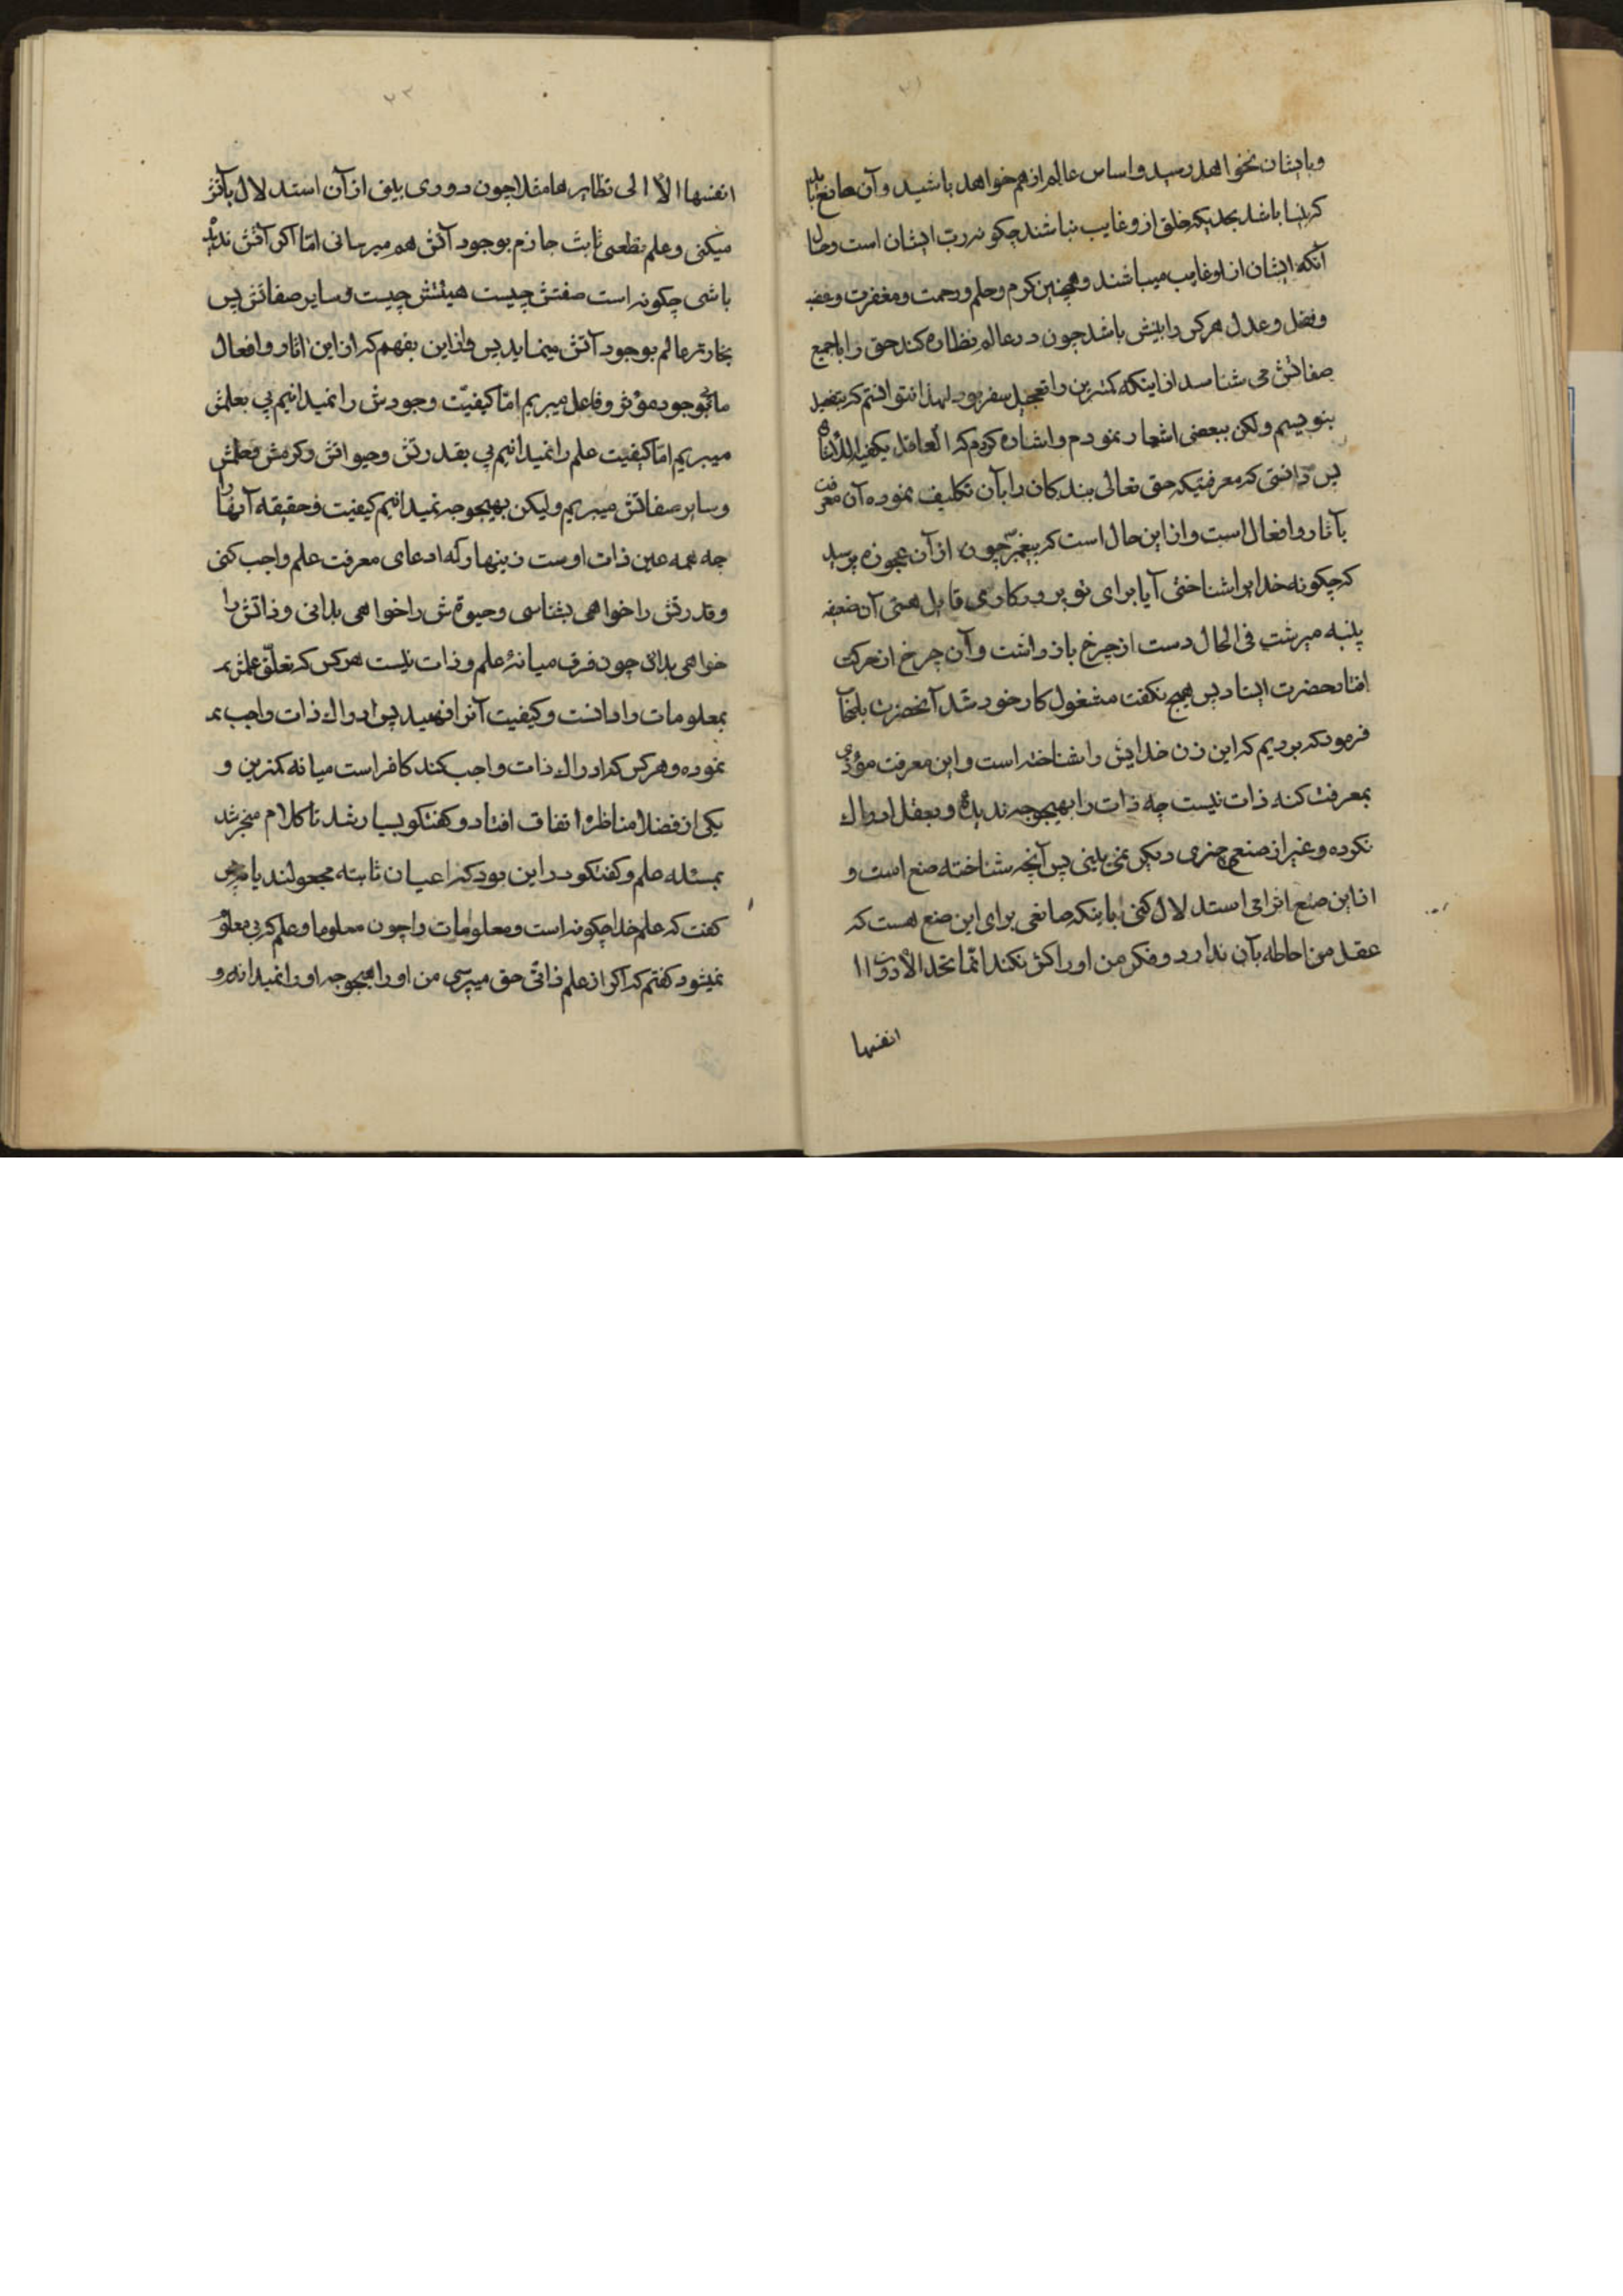 و بایشان نخواهد رسید و اساس عالم از هم خواهد پاشید و آن صانع باید
که بینا باشد بحدیکه خلق ازو غایب نباشند چکونه رب ایشان است و حال
آنکه ایشان از او غایب میباشند و همچنین کرم و حلم و رحمت و مغفرت و غضب
و فضل و عدل هر کس را بینش باشد چون در عالم نظاره کند حق را با جمیع
صفاتش می شناسد از اینکه کمترین را تعجیل سفر بود لهذا نتوانستم که بتفصیل
بنویسم ولکن ببعضی اشعار نمودم و اشاره کردم که العاقل یکفیه الاشاره
پس دانستی که معرفتیکه حق تعالی بندکان را بآن تکلیف نموده آن معرفت
بآثار و افعال است و از این حال است که پیغمبر چون از آن عجوزه پرسید
که چکونه خدا را شناختی آیا برای تو پرورکاری قایل هستی آن ضعیفه
پنبه میرشت فی الحال دست از چرخ باز داشت و آن چرخ از حرکت
افتاد حضرت ایستاد پس هیچ نکفت مشغول کار خود شد آنحضرت
فرمودکه بودیم که این زن خدایش را شناخته است و این معرفت مؤدی
بمعرفت کنه ذات نیست چه ذات را بهیچوجه ندیده و بعقل ادراک
نکرده و غیر از صنع چیزی دیکر نمی بینی پس آنچه شناخته صنع است و
از این صنع استدلال کنی باینکه صانعی برای این صنع هست که
عقل من احاطه بآن ندارد و فکر من او را کنز نکند انما تحد الادوات
انفسها
٢٣
انفسها الا الی نظایرها مثلا چون دودی بینی از آن استدلال بآتش
میکنی و علم قطعی ثابت جازم بوجود آتش هم میرسانی اما اکر آتش ندیده
باشی چکونه است صفتش چیست هیئتش چیست و سایر صفاتش پس
بخار ترا عالم بوجود آتش مینماید پس از این بفهم که از این آثار و افعال
ما بوجود مؤثر و فاعل میبریم اما کیفیت وجودش را نمیدانیم پی بعلمش
میبریم اما کیفیت علم را نمیدانیم پی بقدرتش و حیواتش و کرمش و
و سایر صفاتش میبریم ولیکن بهیچوجه نمیدانیم کیفیت و حقیقه آنها را
چه همه عین ذات اوست زینهار که ادعای معرفت علم واجب کنی
و قدرتش را خواهی بشناسی و حیوة ش را خواهی بدانی و ذاتش را
خواهی بدانی چون فرق میانهٔ علم و ذات نیست هر کس که تعلق علمش بر
بمعلومات را دانست و کیفیت آنرا فهمید پس ادراک ذات واجب بر
نموده و هر کس که ادراک ذات واجب کند کافر است میانه کمترین و
یکی از فضلا مناظره اتفاق افتاد و کفتکو بسیار شد تا کلام منجر شد
بمسئله علم و کفتکو در این بود که اعیان ثابته مجعولند یا نه پس
کفت که علم خدا چکونه است و معلومات را چون معلوما و علم که بی معلوم
نمیشود کفتم که اکر از علم ذاتی حق میپرسی من او را بهیچوجه او را نمیدانم و